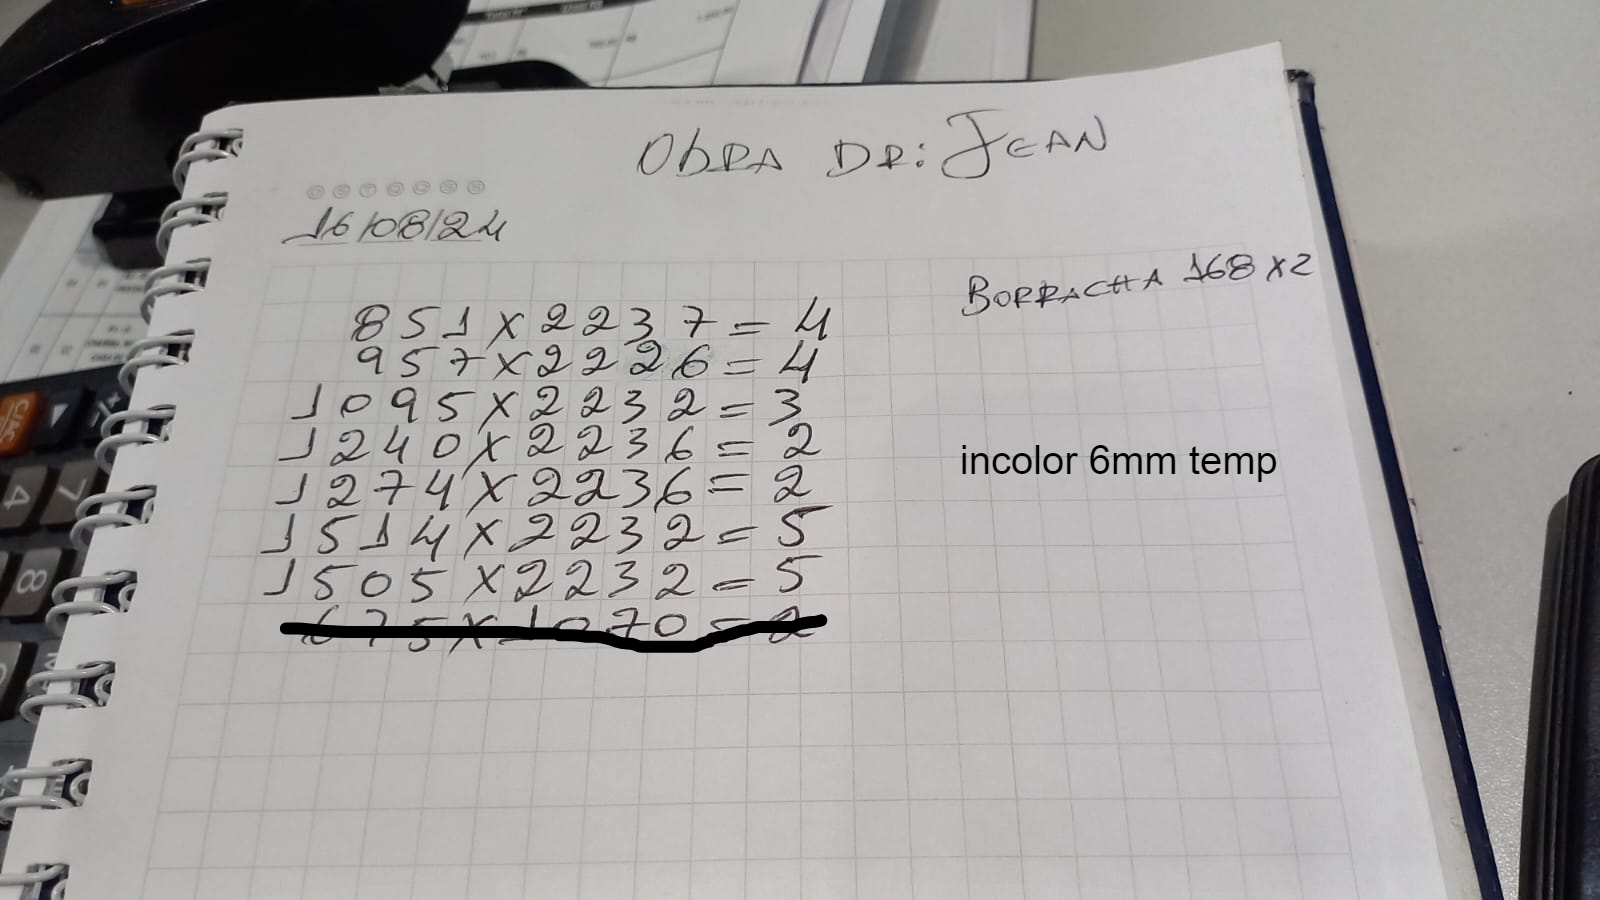 Obra Dr: Jean
16/08/24
Borracha 168 x 2
851 x 2237 = 4
957 x 2226 = 4
1095 x 2232 = 3
1240 x 2236 = 2
1274 x 2236 = 2
incolor 6mm temp
1514 x 2232 = 5
1505 x 2232 = 5
675 x 1070 = 2